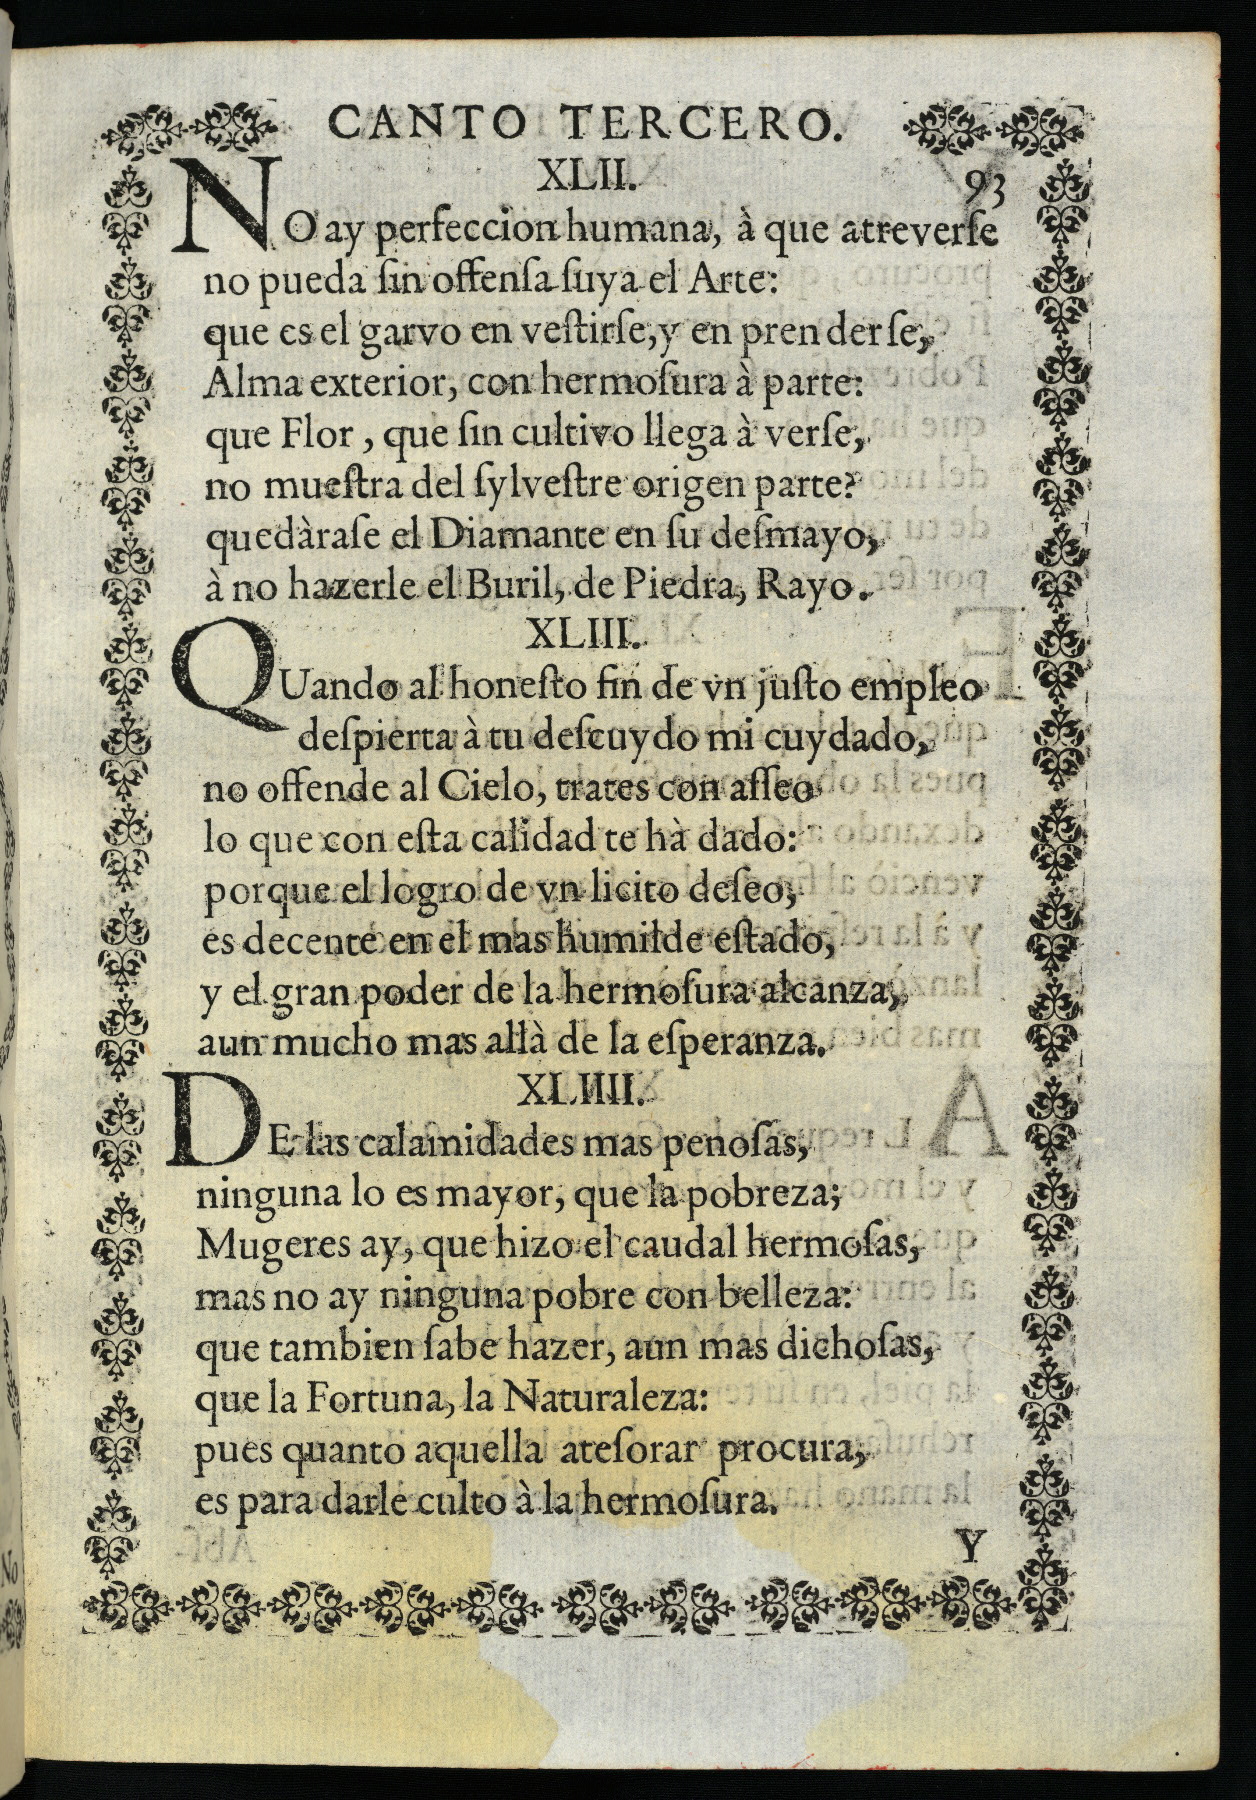 CANTO TERCERO.
XLII.
93
NO ay perfeccion humana, à que atreverſe
no pueda ſin offenſa ſuya el Arte:
que es el garvo en veſtirſe, y en prenderſe,
Alma exterior, con hermoſura à parte:
que Flor, que ſin cultivo llega à verſe,
no mueſtra del ſylveſtre origen parte?
quedàraſe el Diamante en ſu deſmayo,
à no hazerle el Buril, de Piedra, Rayo.
XLIII.
QUando al honeſto fin de vn juſto empleo
deſpierta à tu deſcuydo mi cuydado,
no offende al Cielo, trates con aſſeo
lo que con eſta calidad te hà dado:
porque el logro de vn licito deſeo,
es decente en el mas humilde eſtado,
y el gran poder de la hermoſura alcanza,
aun mucho mas allà de la eſperanza.
XLIIII.
DE las calamidades mas penoſas,
ninguna lo es mayor, que la pobreza;
Mugeres ay, que hizo el caudal hermoſas,
mas no ay ninguna pobre con belleza:
que tambien ſabe hazer, aun mas dichoſas,
que la Fortuna, la Naturaleza:
pues quanto aquella ateſorar procura,
es para darle culto à la hermoſura.
Y